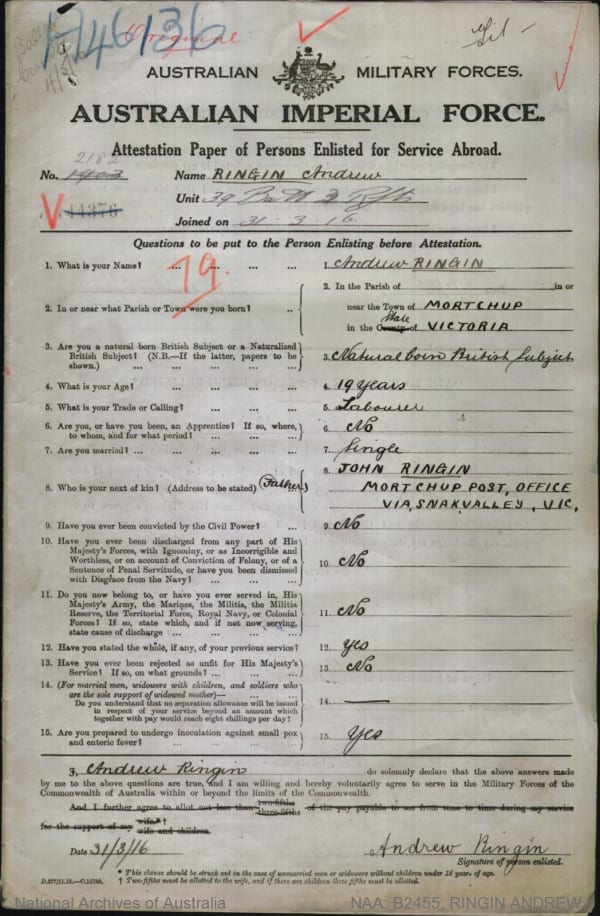 46136
Original
AUSTRALIAN MILITARY FORCES.
AUSTRALIAN IMPERIAL FORCE.
Attestation Paper of Persons Enlisted for Service Abroad.
2182
No. 1903 Name RINGIN Andrew
44376 Unit 39 Battn 3 Rfts
Joined on 31.3.16.
Questions to be put to the Person Enlisting before Attestation.
79.
1. What is your Name? ... ... ... ... 1. Andrew RINGIN
2. In or near what Parish or Town were you born? .. 2. In the Parish of in or
near the Town of MORTCHUP
State
in the County of VICTORIA
3. Are you a natural born British Subject or a Naturalized
British Subject? (N.B.—If the latter, papers to be
shown.) ... ... ... ... 3. Natural born British Subject
4. What is your Age? ... ... ... ... 4. 19 Years
5. What is your Trade or Calling? ... ... ... 5. Labourer
6. Are you, or have you been, an Apprentice? If so, where,
to whom, and for what period? ... ... ... 6. No
7. Are you married? ... ... ... ... ... 7. Single
8. Who is your next of kin? (Address to be stated) (Father) 8. JOHN RINGIN
MORTCHUP POST, OFFICE
VIA, SNAKVALLEY, VIC,
9. Have you ever been convicted by the Civil Power? ... 9. No
10. Have you ever been discharged from any part of His
Majesty's Forces, with Ignominy, or as Incorrigible and
Worthless, or on account of Conviction of Felony, or of a
Sentence of Penal Servitude, or have you been dismissed
with Disgrace from the Navy? ... ... ... 10. No
11. Do you now belong to, or have you ever served in, His
Majesty's Army, the Marines, the Militia, the Militia
Reserve, the Territorial Force, Royal Navy, or Colonial
Forces? If so, state which, and if not now serving,
state cause of discharge ... ... ... ... 11. No
12. Have you stated the whole, if any, of your previous service? 12. Yes
13. Have you ever been rejected as unfit for His Majesty's
Service? If so, on what grounds? ... ... ... 13. No
14. (For married men, widowers with children, and soldiers who
are the sole support of widowed mother)—
Do you understand that no separation allowance will be issued
in respect of your service beyond an amount which
together with pay would reach eight shillings per day? 14. —
15. Are you prepared to undergo inoculation against small pox
and enteric fever? ... ... ... ... 15. Yes
I, Andrew Ringin do solemnly declare that the above answers made
by me to the above questions are true, and I am willing and hereby voluntarily agree to serve in the Military Forces of the
Commonwealth of Australia within or beyond the limits of the Commonwealth.
And I further agree to allot not less than two-fifths three-fifths of the pay payable to me from time to time during my service
for the support of my wife.* wife and children.
Date 31/3/16 Andrew Ringin
Signature of person enlisted.
* This clause should be struck out in the case of unmarried men or widowers without children under 18 years of age.
D.277/11.15.—C.15798. † Two-fifths must be allotted to the wife, and if there are children three-fifths must be allotted.
National Archives of Australia NAA: B2455, RINGIN ANDREW